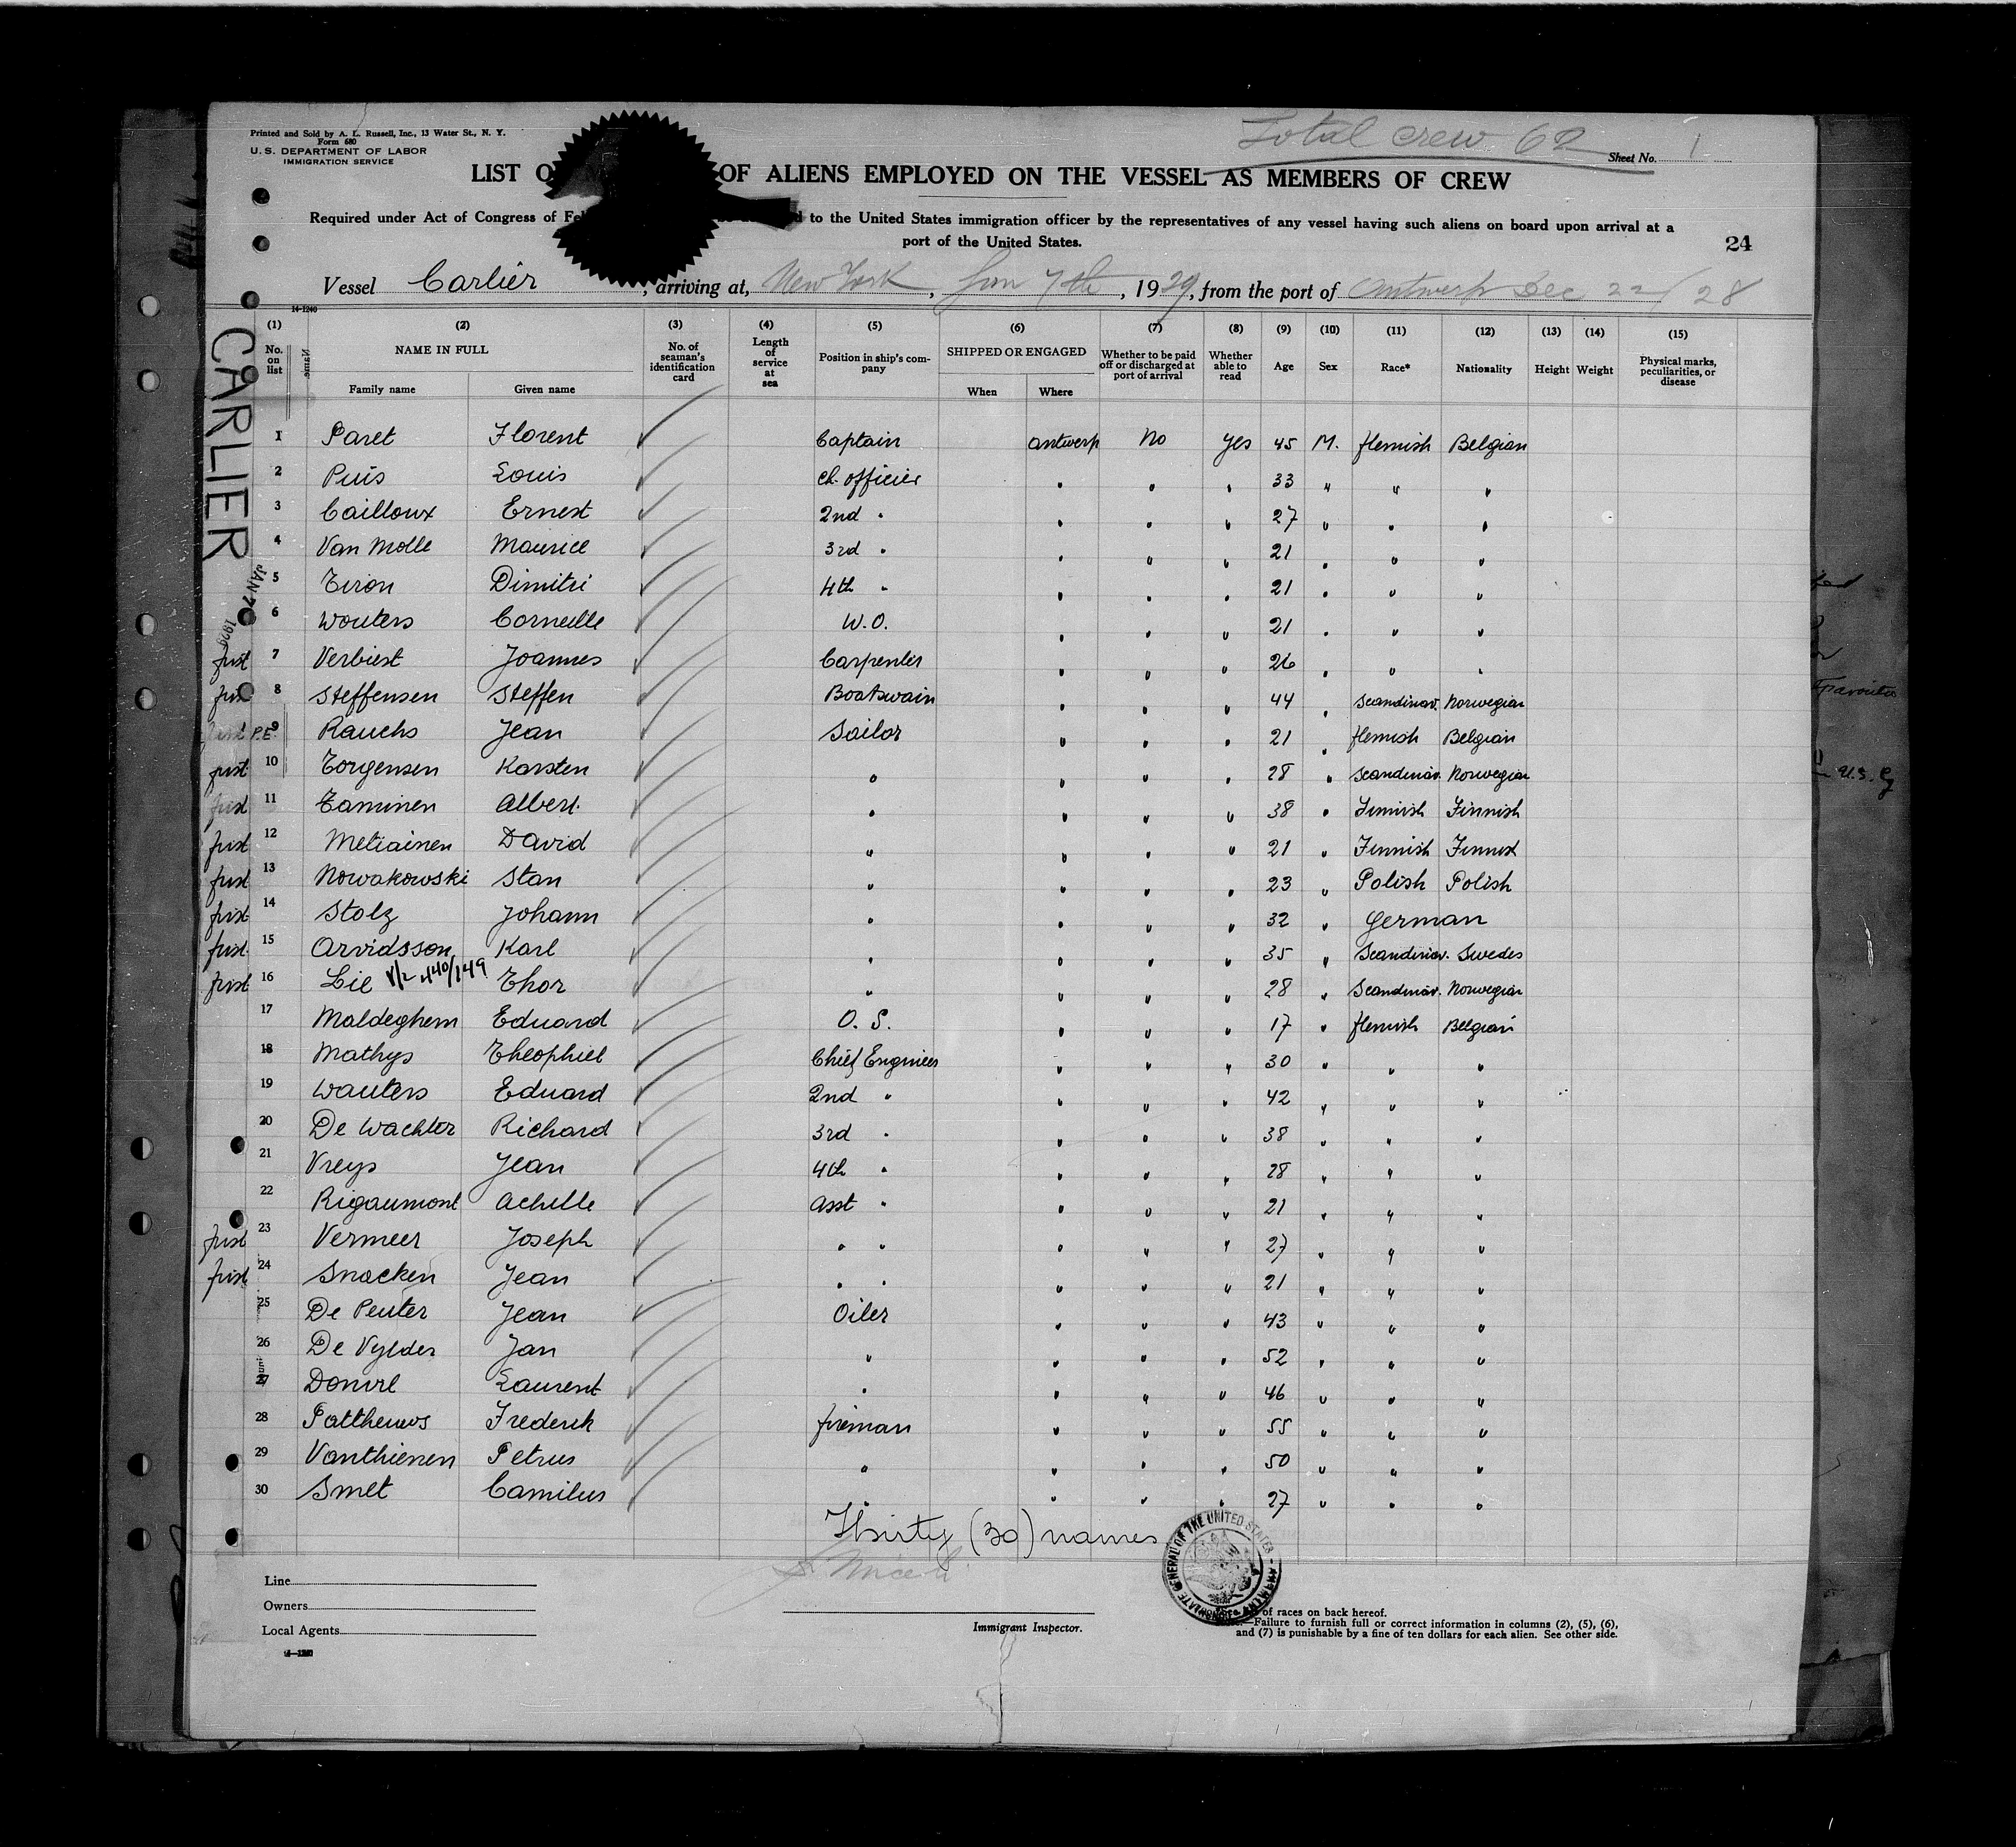 Printed and Sold by A. L. Russell, Inc., 13 Water St., N. Y.
Form 680
U. S. DEPARTMENT OF LABOR
IMMIGRATION SERVICE
Total crew 62
Sheet No. 1
LIST O OF ALIENS EMPLOYED ON THE VESSEL AS MEMBERS OF CREW
Required under Act of Congress of Fe to the United States immigration officer by the representatives of any vessel having such aliens on board upon arrival at a
port of the United States.
24
Vessel Carlier, arriving at, New York, Jan 7th, 1929, from the port of Antwerp Dec 22/28
14-1240
CARLIER
JAN 7 1929
(1) (2) (3) (4) (5) (6) (7) (8) (9) (10) (11) (12) (13) (14) (15)
No. on list NAME IN FULL No. of seaman's identification card Length of service at sea Position in ship's company SHIPPED OR ENGAGED Whether to be paid off or discharged at port of arrival Whether able to read Age Sex Race* Nationality Height Weight Physical marks, peculiarities, or disease
Family name Given name When Where
1 Paret Florent Captain Antwerp No yes 45 M. flemish Belgian
2 Puis Louis Ch. officier " " " 33 " " "
3 Cailloux Ernest 2nd " " " " 27 " " "
4 Van Molle Maurice 3rd " " " " 21 " " "
5 Tiron Dimitri 4th " " " " 21 " " "
6 Wouters Corneille W.O. " " " 21 " " "
first 7 Verbiest Joannes Carpenter " " " 26 " " "
first 8 Steffensen Steffen Boatswain " " " 44 " Scandinav. Norwegian
P.E. 9 Rauchs Jean Sailor " " " 21 " flemish Belgian
first 10 Torgensen Karsten " " " " 28 " Scandinav. Norwegian
first 11 Taminen Albert " " " " 38 " Finnish Finnish
first 12 Metiainen David " " " " 21 " Finnish Finnish
first 13 Nowakowski Stan " " " " 23 " Polish Polish
first 14 Stolz Johann " " " " 32 " German
first 15 Arvidsson Karl " " " " 35 " Scandinav. Swedes
first 16 Lie Thor " " " " 28 " Scandinav. Norwegian
17 Maldeghem Eduard O. S. " " " 17 " flemish Belgian
18 Mathys Theophiel Chief Engineer " " " 30 " " "
19 Wauters Eduard 2nd " " " " 42 " " "
20 De Wachter Richard 3rd " " " " 38 " " "
21 Vreys Jean 4th " " " " 28 " " "
22 Rigaumont Achille Asst " " " " 21 " " "
first 23 Vermeer Joseph " " " " " 27 " " "
first 24 Snacken Jean " " " " " 21 " " "
25 De Peuter Jean Oiler " " " 43 " " "
26 De Vylder Jan " " " " 52 " " "
27 Laurent " " " " 46 " " "
28 Pattheuws Frederik fireman " " " 55 " " "
29 Vanthienen Petrus " " " " 50 " " "
30 Smet Camilus " " " " 27 " " "
Thirty (30) names
Line
Owners
Local Agents
Immigrant Inspector.
of races on back hereof.
Failure to furnish full or correct information in columns (2), (5), (6),
and (7) is punishable by a fine of ten dollars for each alien. See other side.